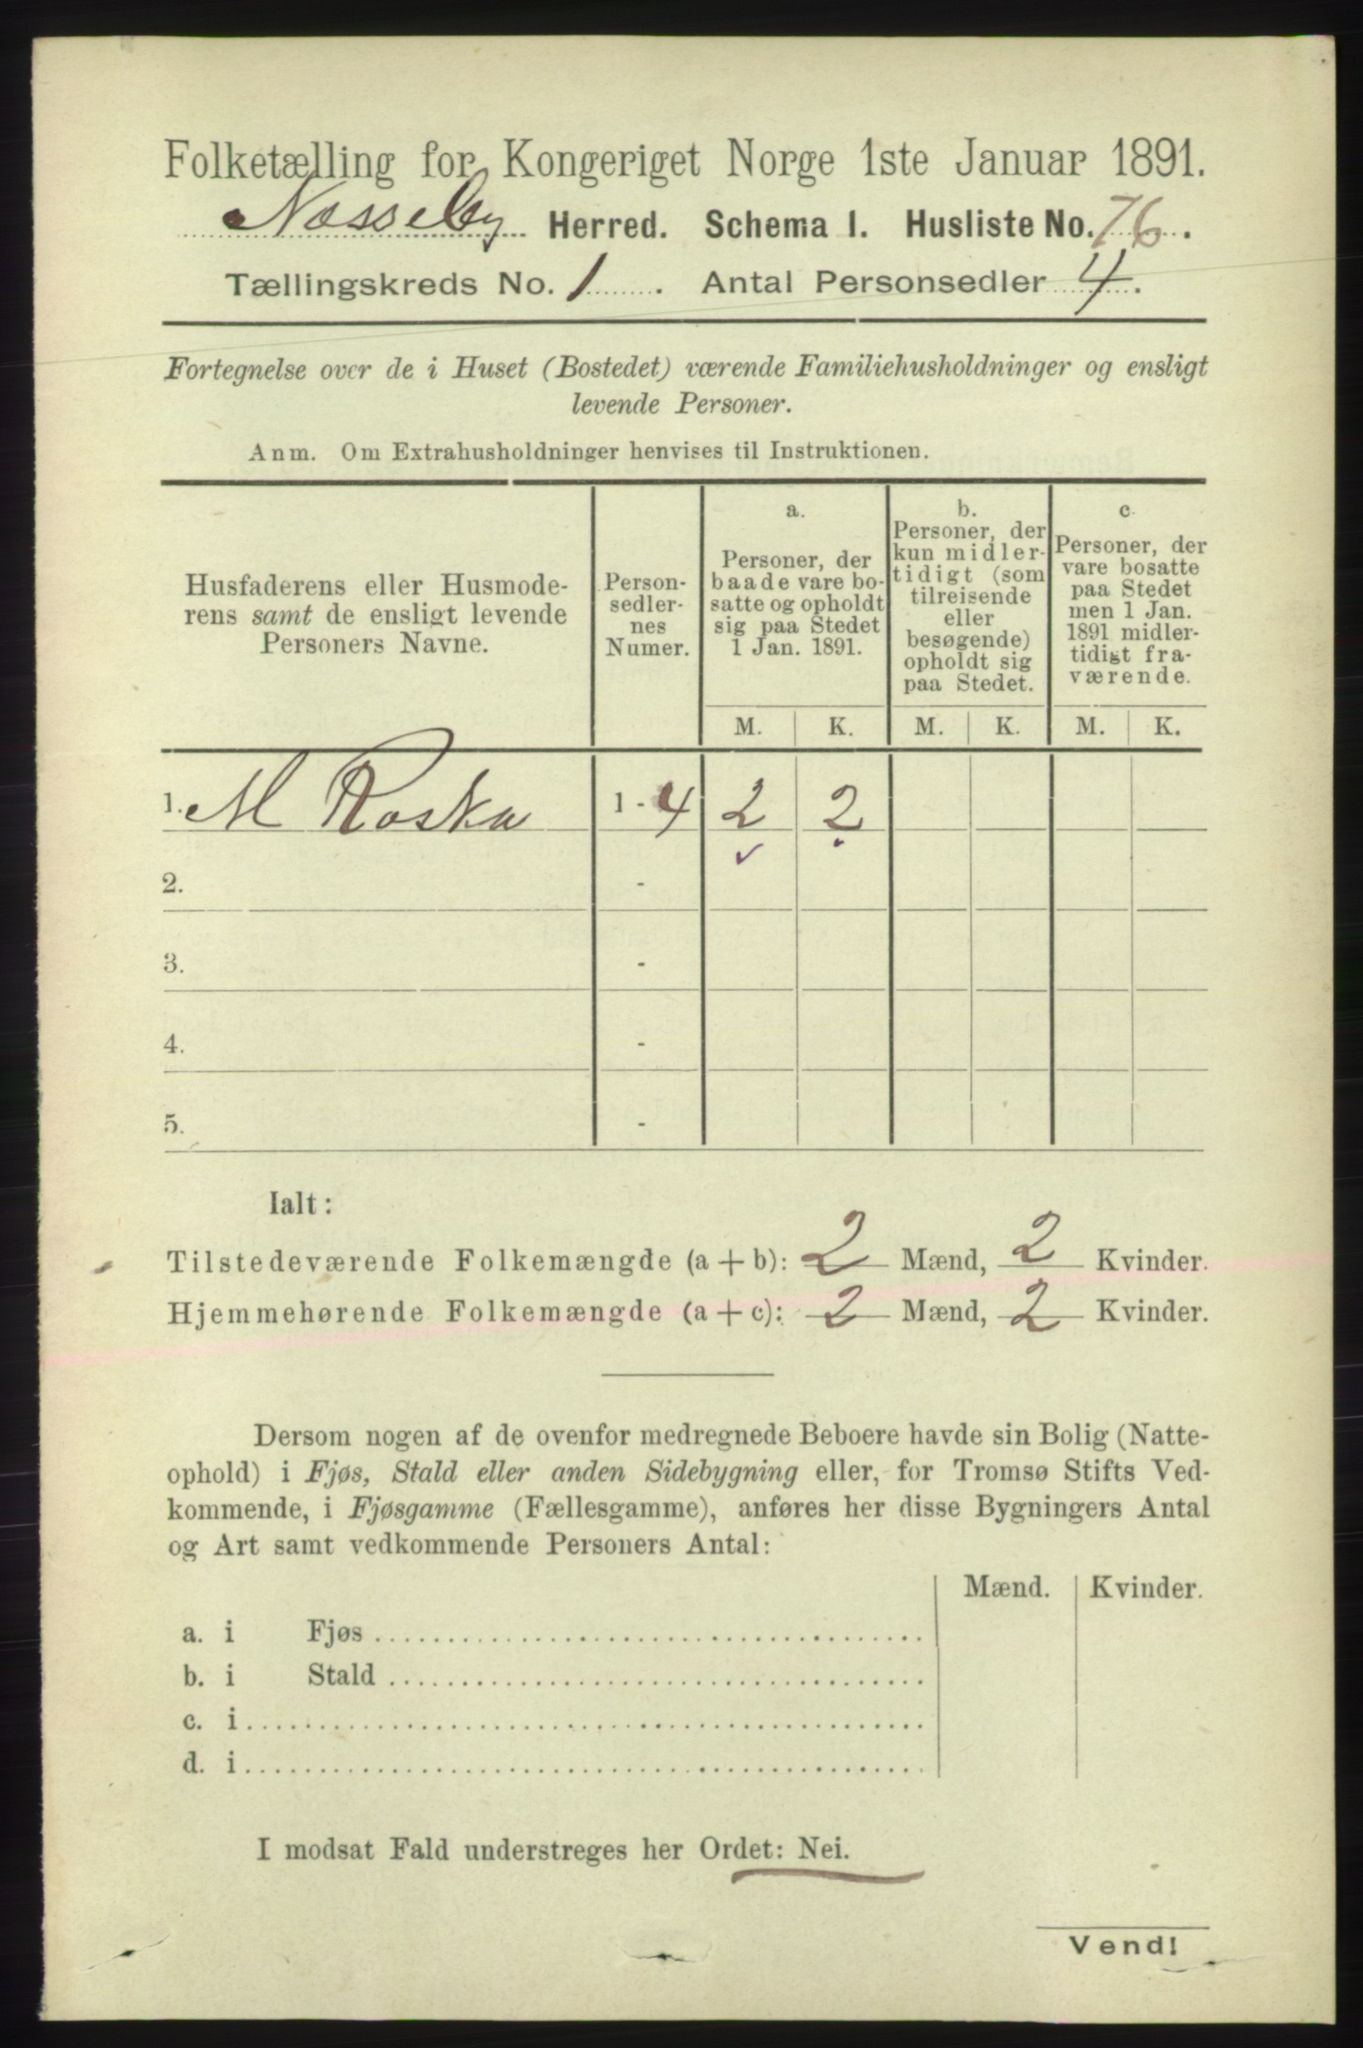 Folketælling for Kongeriget Norge 1ste Januar 1891.
Næsseby Herred. Schema I. Husliste No. 76.
Tællingskreds No. 1. Antal Personsedler 4.
Fortegnelse over de i Huset (Bostedet) værende Familiehusholdninger og ensligt
levende Personer.
Anm. Om Extrahusholdninger henvises til Instruktionen.
Husfaderens eller Husmode-
rens samt de ensligt levende
Personers Navne.
Person-
sedler-
nes
Numer.
a.
Personer, der
baade vare bo-
satte og opholdt
sig paa Stedet
1 Jan. 1891.
b.
Personer, der
kun midler-
tidigt (som
tilreisende
eller
besøgende)
opholdt sig
paa Stedet.
c.
Personer, der
vare bosatte
paa Stedet
men 1 Jan.
1891 midler-
tidigt fra-
værende.
M. K. M. K. M. K.
1. M Roska 1 - 4 2 2
2. -
3. -
4. -
5. -
Ialt:
Tilstedeværende Folkemængde (a + b): 2 Mænd, 2 Kvinder.
Hjemmehørende Folkemængde (a + c): 2 Mænd, 2 Kvinder.
Dersom nogen af de ovenfor medregnede Beboere havde sin Bolig (Natte-
ophold) i Fjøs, Stald eller anden Sidebygning eller, for Tromsø Stifts Ved-
kommende, i Fjøsgamme (Fællesgamme), anføres her disse Bygningers Antal
og Art samt vedkommende Personers Antal:
Mænd. Kvinder.
a. i Fjøs
b. i Stald
c. i
d. i
I modsat Fald understreges her Ordet: Nei.
Vend!